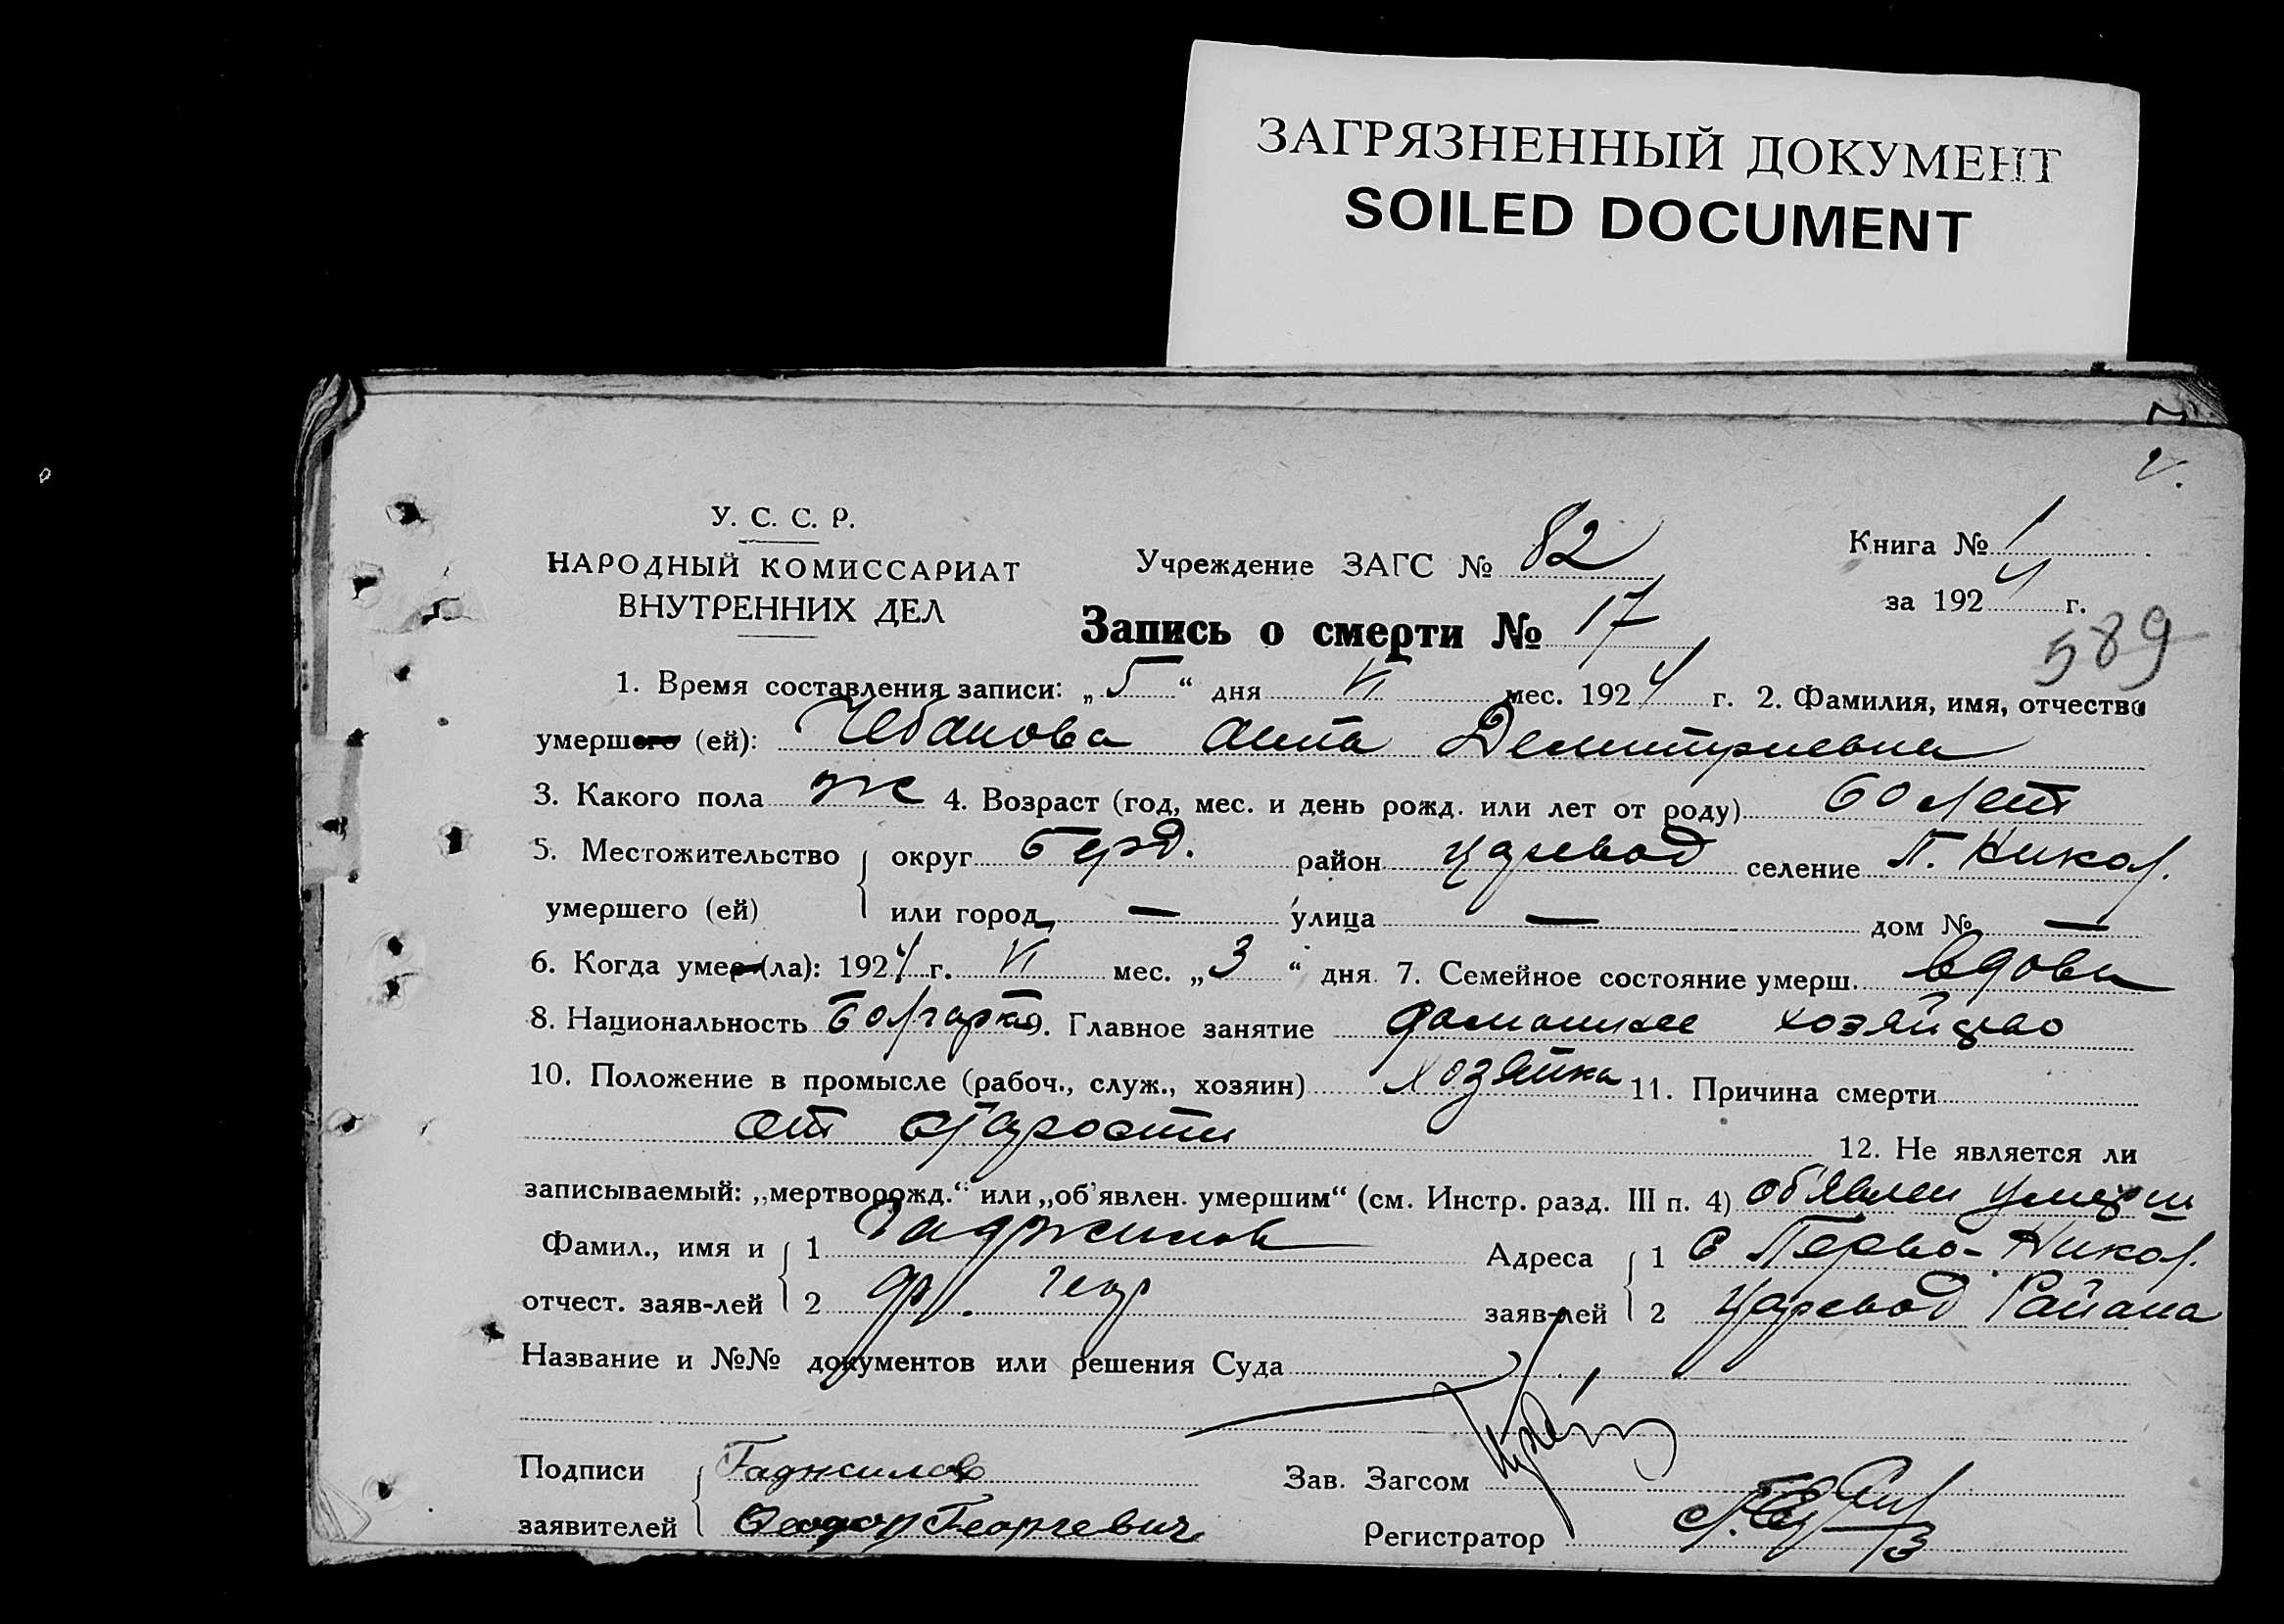 ЗАГРЯЗНЕННЫЙ ДОКУМЕНТ
SOILED DOCUMENT
У. С. С. Р.
НАРОДНЫЙ КОМИССАРИАТ
ВНУТРЕННИХ ДЕЛ
Учреждение ЗАГС № 82
Книга № 1
за 1924 г.
Запись о смерти № 17
589
1. Время составления записи: „5“ дня VI мес. 1924 г. 2. Фамилия, имя, отчество
умершего (ей): Чебанова Анна Демитриевна
3. Какого пола ж 4. Возраст (год, мес. и день рожд. или лет от роду) 60 лет
5. Местожительство округ Берд. район Царевод селение П. Никол.
умершего (ей) или город — улица — дом № —
6. Когда умер (ла): 1924 г. VI мес. „3“ дня 7. Семейное состояние умерш. вдова
8. Национальность Болгарка 9. Главное занятие домашнее хозяйство
10. Положение в промысле (рабоч., служ., хозяин) хозяйка 11. Причина смерти
от старости
12. Не является ли
записываемый: „мертворожд.“ или „об'явлен. умершим“ (см. Инстр. разд. III п. 4) об'явлен умерш
Фамил., имя и 1 Гаджилов Адреса 1 С Перво-Никол.
отчест. заяв-лей 2 Фд. Геор заяв-лей 2 Царевод Района
Название и №№ документов или решения Суда
Подписи Гаджилов Зав. Загсом
заявителей Феодор Георгевич Регистратор